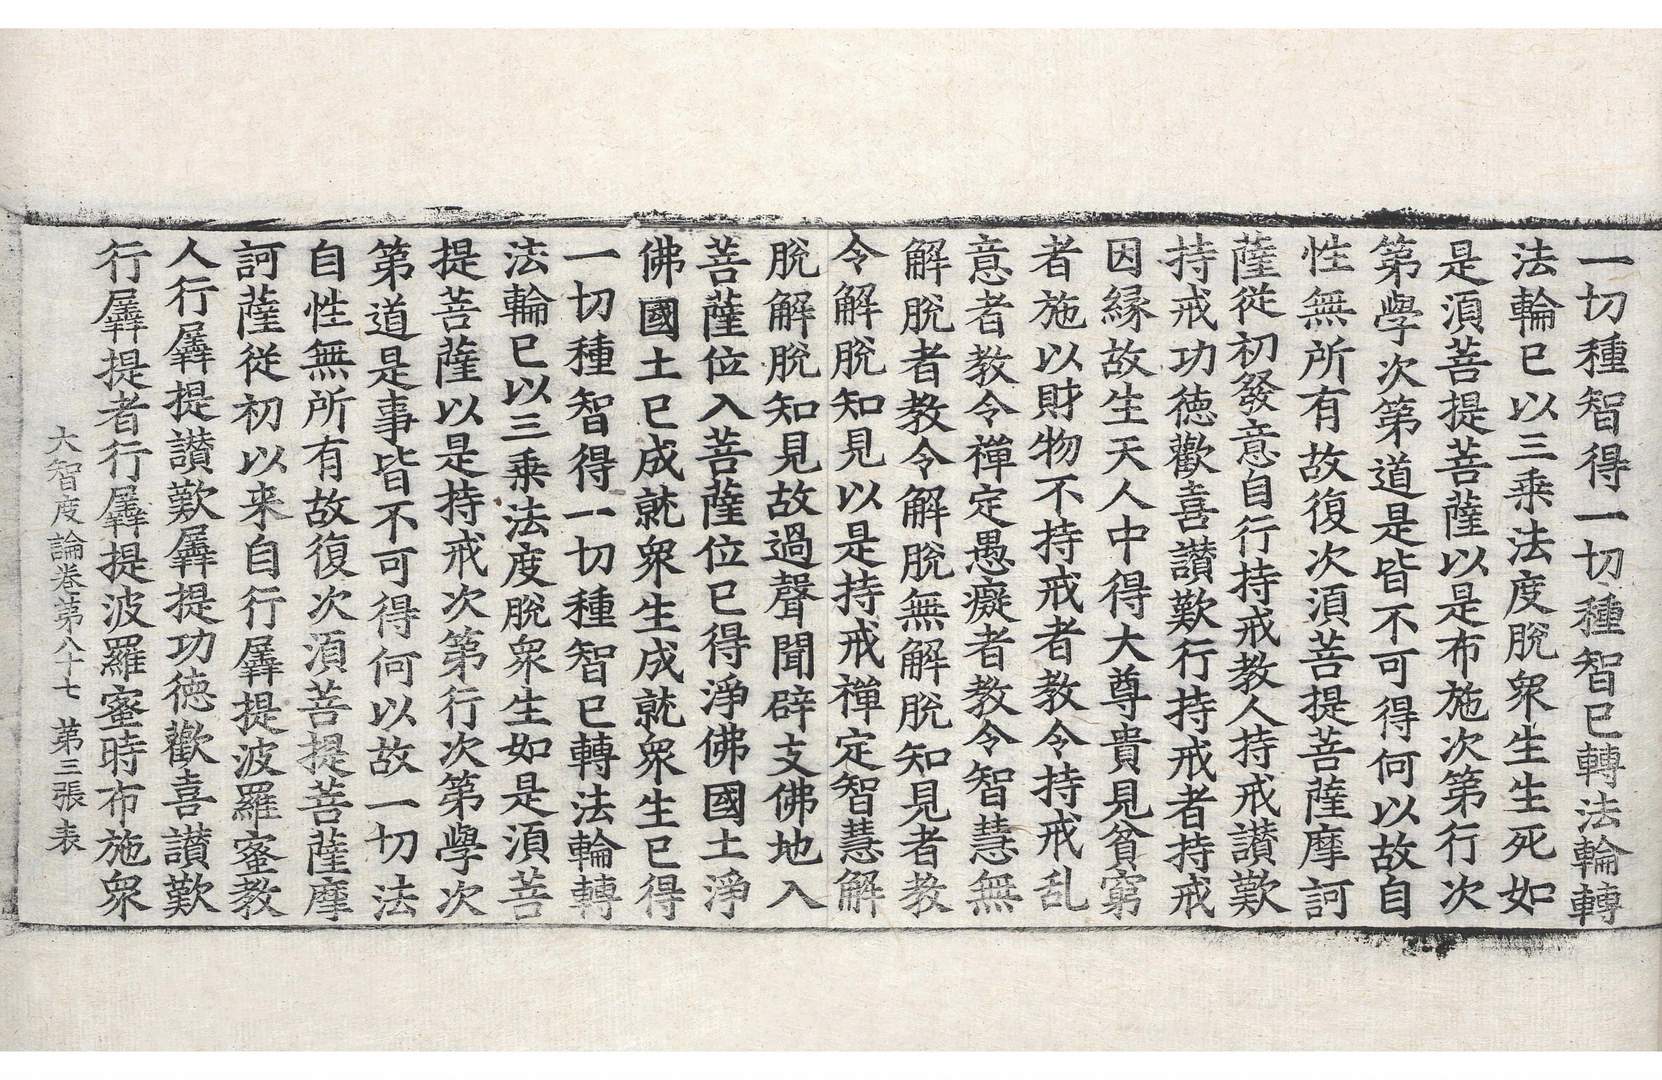 一切種智得一切種智已轉法輪轉
法輪已以三乘法度脫衆生生死如
是湏菩提菩薩以是布施次第行次
第學次第道是皆不可得何以故自
性無所有故復次湏菩提菩薩摩訶
薩從初發意自行持戒教人持戒讃歎
持戒功徳歡喜讃歎行持戒者持戒
因縁故生天人中得大尊貴見貧窮
者施以財物不持戒者教令持戒乱
意者教令禪定愚癡者教令智慧無
解脫者教令解脫無解脫知見者教
令解脫知見以是持戒禪定智慧解
脫解脫知見故過聲聞辟支佛地入
菩薩位入菩薩位已得淨佛國土淨
佛國土已成就衆生成就衆生已得
一切種智得一切種智已轉法輪轉
法輪已以三乘法度脫衆生如是湏菩
提菩薩以是持戒次第行次第學次
第道是事皆不可得何以故一切法
自性無所有故復次湏菩提菩薩摩
訶薩從初以来自行羼提波羅蜜教
人行羼提讃歎羼提功徳歡喜讃歎
行羼提者行羼提波羅蜜時布施衆
大智度論卷第八十七 第三張 表